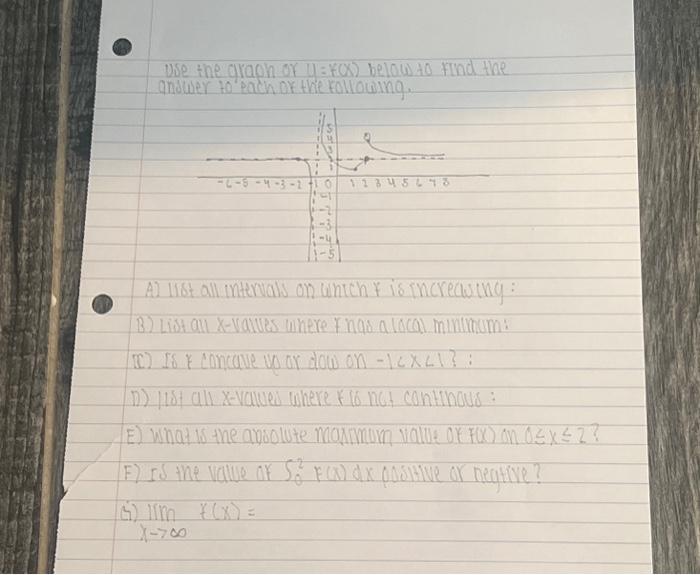 Use the graph of y = f(x) below to find the
answer to each of the following.
5
4
3
-6 -5 -4 -3 -2 -1 0 1 2 3 4 5 6 7 8
-1
-2
-3
-4
-5
A) list all intervals on which f is increasing :
B) List all x-values where f has a local minimum:
C) Is f concave up or dow on -1<x<1? :
D) list all x-values where f is not continous :
E) What is the absolute maximum value of f(x) on 0≤x≤2?
F) Is the value of ∫₀² f(x) dx positive or negtive?
G) lim f(x) =
x->∞